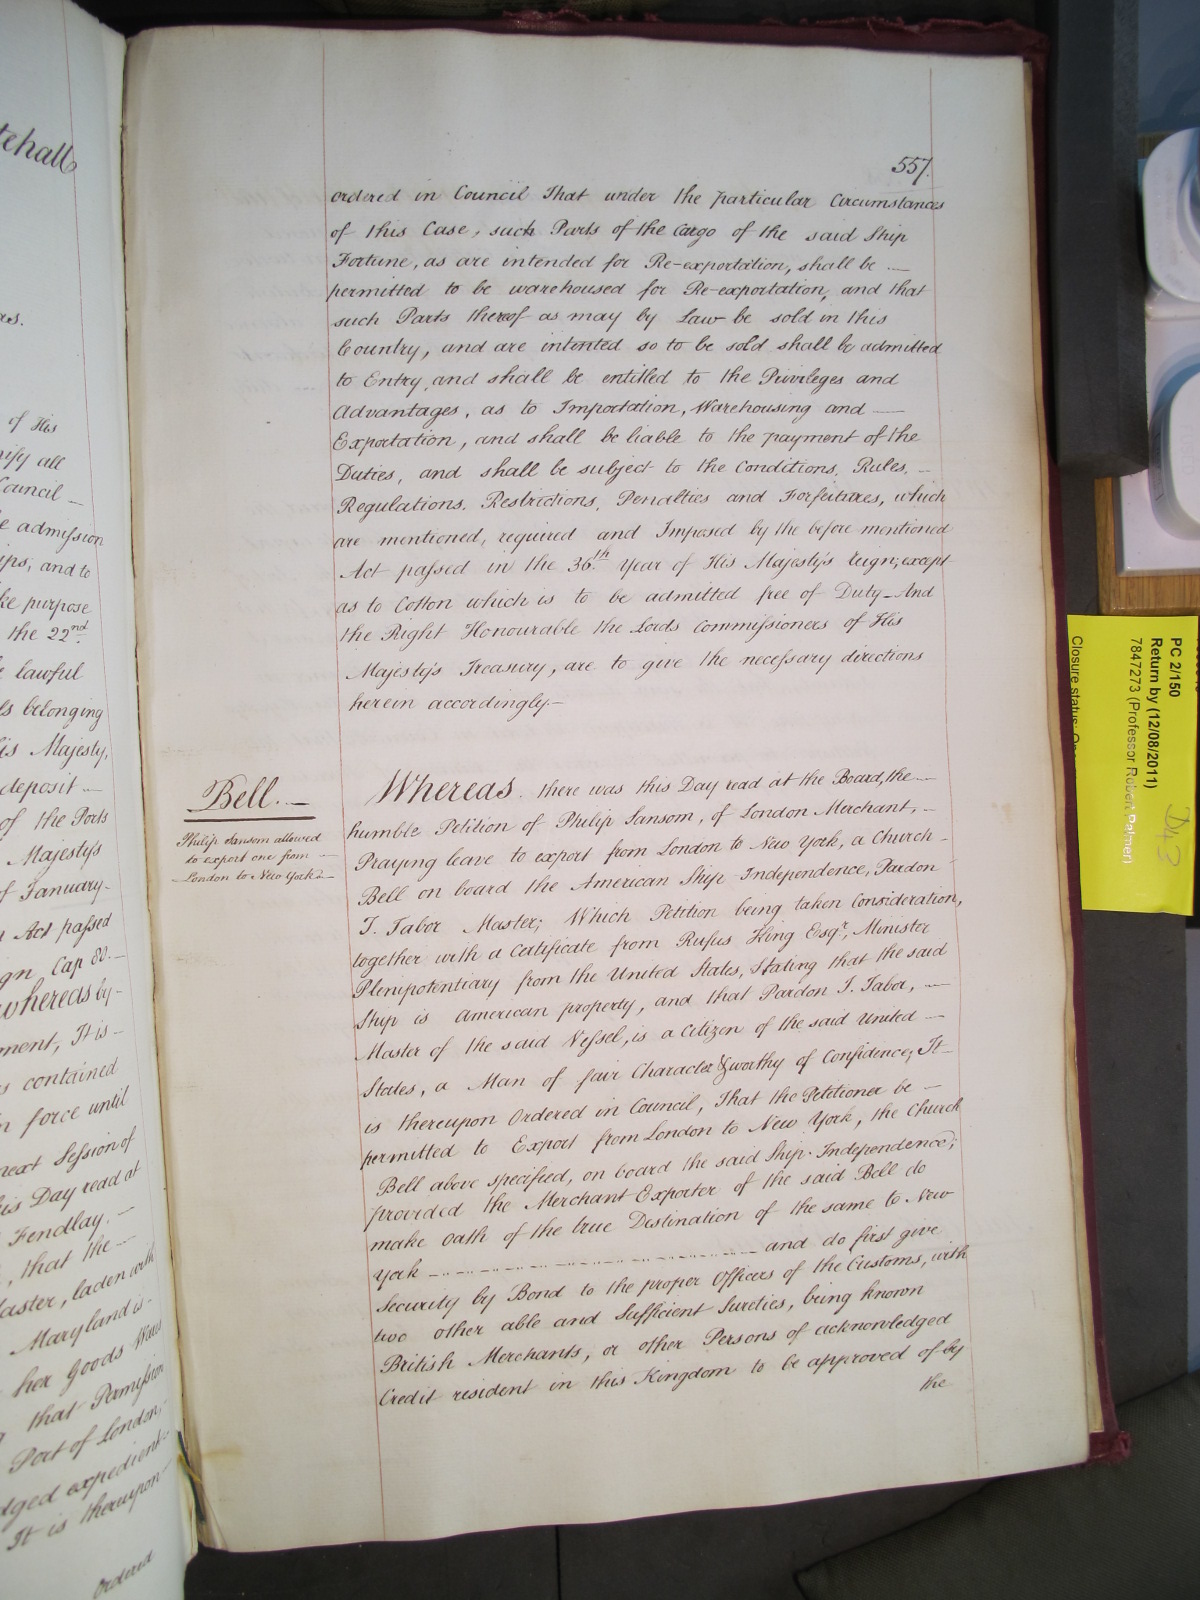 tehall
as.
of His
all
Council
admission
ips, and to
ke purpose
the 22nd.
lawful
ls belonging
is Majesty,
deposit
of the Ports
Majesty's
of January
Act passed
ign, Cap 80.
whereas by
ment, It is
s contained
in force until
next Session of
is Day read at
Fendlay.
, that the
Master, laden with
Maryland is
her Goods Wares
that Permission
Port of London,
dged expedient
It is thereupon
Ordered
557.
ordered in Council That under the particular Circumstances
of this Case, such Parts of the Cargo of the said Ship
Fortune, as are intended for Re-exportation, shall be —
permitted to be warehoused for Re-exportation, and that
such Parts thereof as may by Law be sold in this
Country, and are intended so to be sold shall be admitted
to Entry and shall be entitled to the Privileges and
Advantages, as to Importation, Warehousing and —
Exportation, and shall be liable to the payment of the
Duties, and shall be subject to the Conditions, Rules, —
Regulations, Restrictions, Penalties and Forfeitures, which
are mentioned, required and Imposed by the before mentioned
Act passed in the 36.th Year of His Majesty's reign; except
as to Cotton which is to be admitted free of Duty – And
the Right Honourable the Lords Commissioners of His
Majesty's Treasury, are to give the necessary directions
herein accordingly. –
Bell. —
Philip Sansom allowed
to export one from —
London to New York —
Whereas there was this Day read at the Board, the —
humble Petition of Philip Sansom, of London Merchant, —
Praying leave to export from London to New York, a Church –
Bell on board the American Ship Independence, Pardon
T. Tabor Master; Which Petition being taken Consideration,
together with a Certificate from Rufus King Esqr., Minister
Plenipotentiary from the United States, Stating that the said
Ship is American property, and that Pardon T. Tabor, —
Master of the said Vessel, is a Citizen of the said United —
States, a Man of fair Character & worthy of Confidence; It
is thereupon Ordered in Council, That the Petitioner be —
permitted to Export from London to New York, the Church
Bell above specified, on board the said Ship Independence;
provided the Merchant Exporter of the said Bell do
make Oath of the true Destination of the same to New
York — and do first give
Security by Bond to the proper Officers of the Customs, with
two other able and Sufficient Sureties, being known
British Merchants, or other Persons of acknowledged
Credit resident in this Kingdom to be approved of by
the
PC 2/150
Return by (12/08/2011)
7847273 (Professor Robert Palmer)
Closure status: O
D43